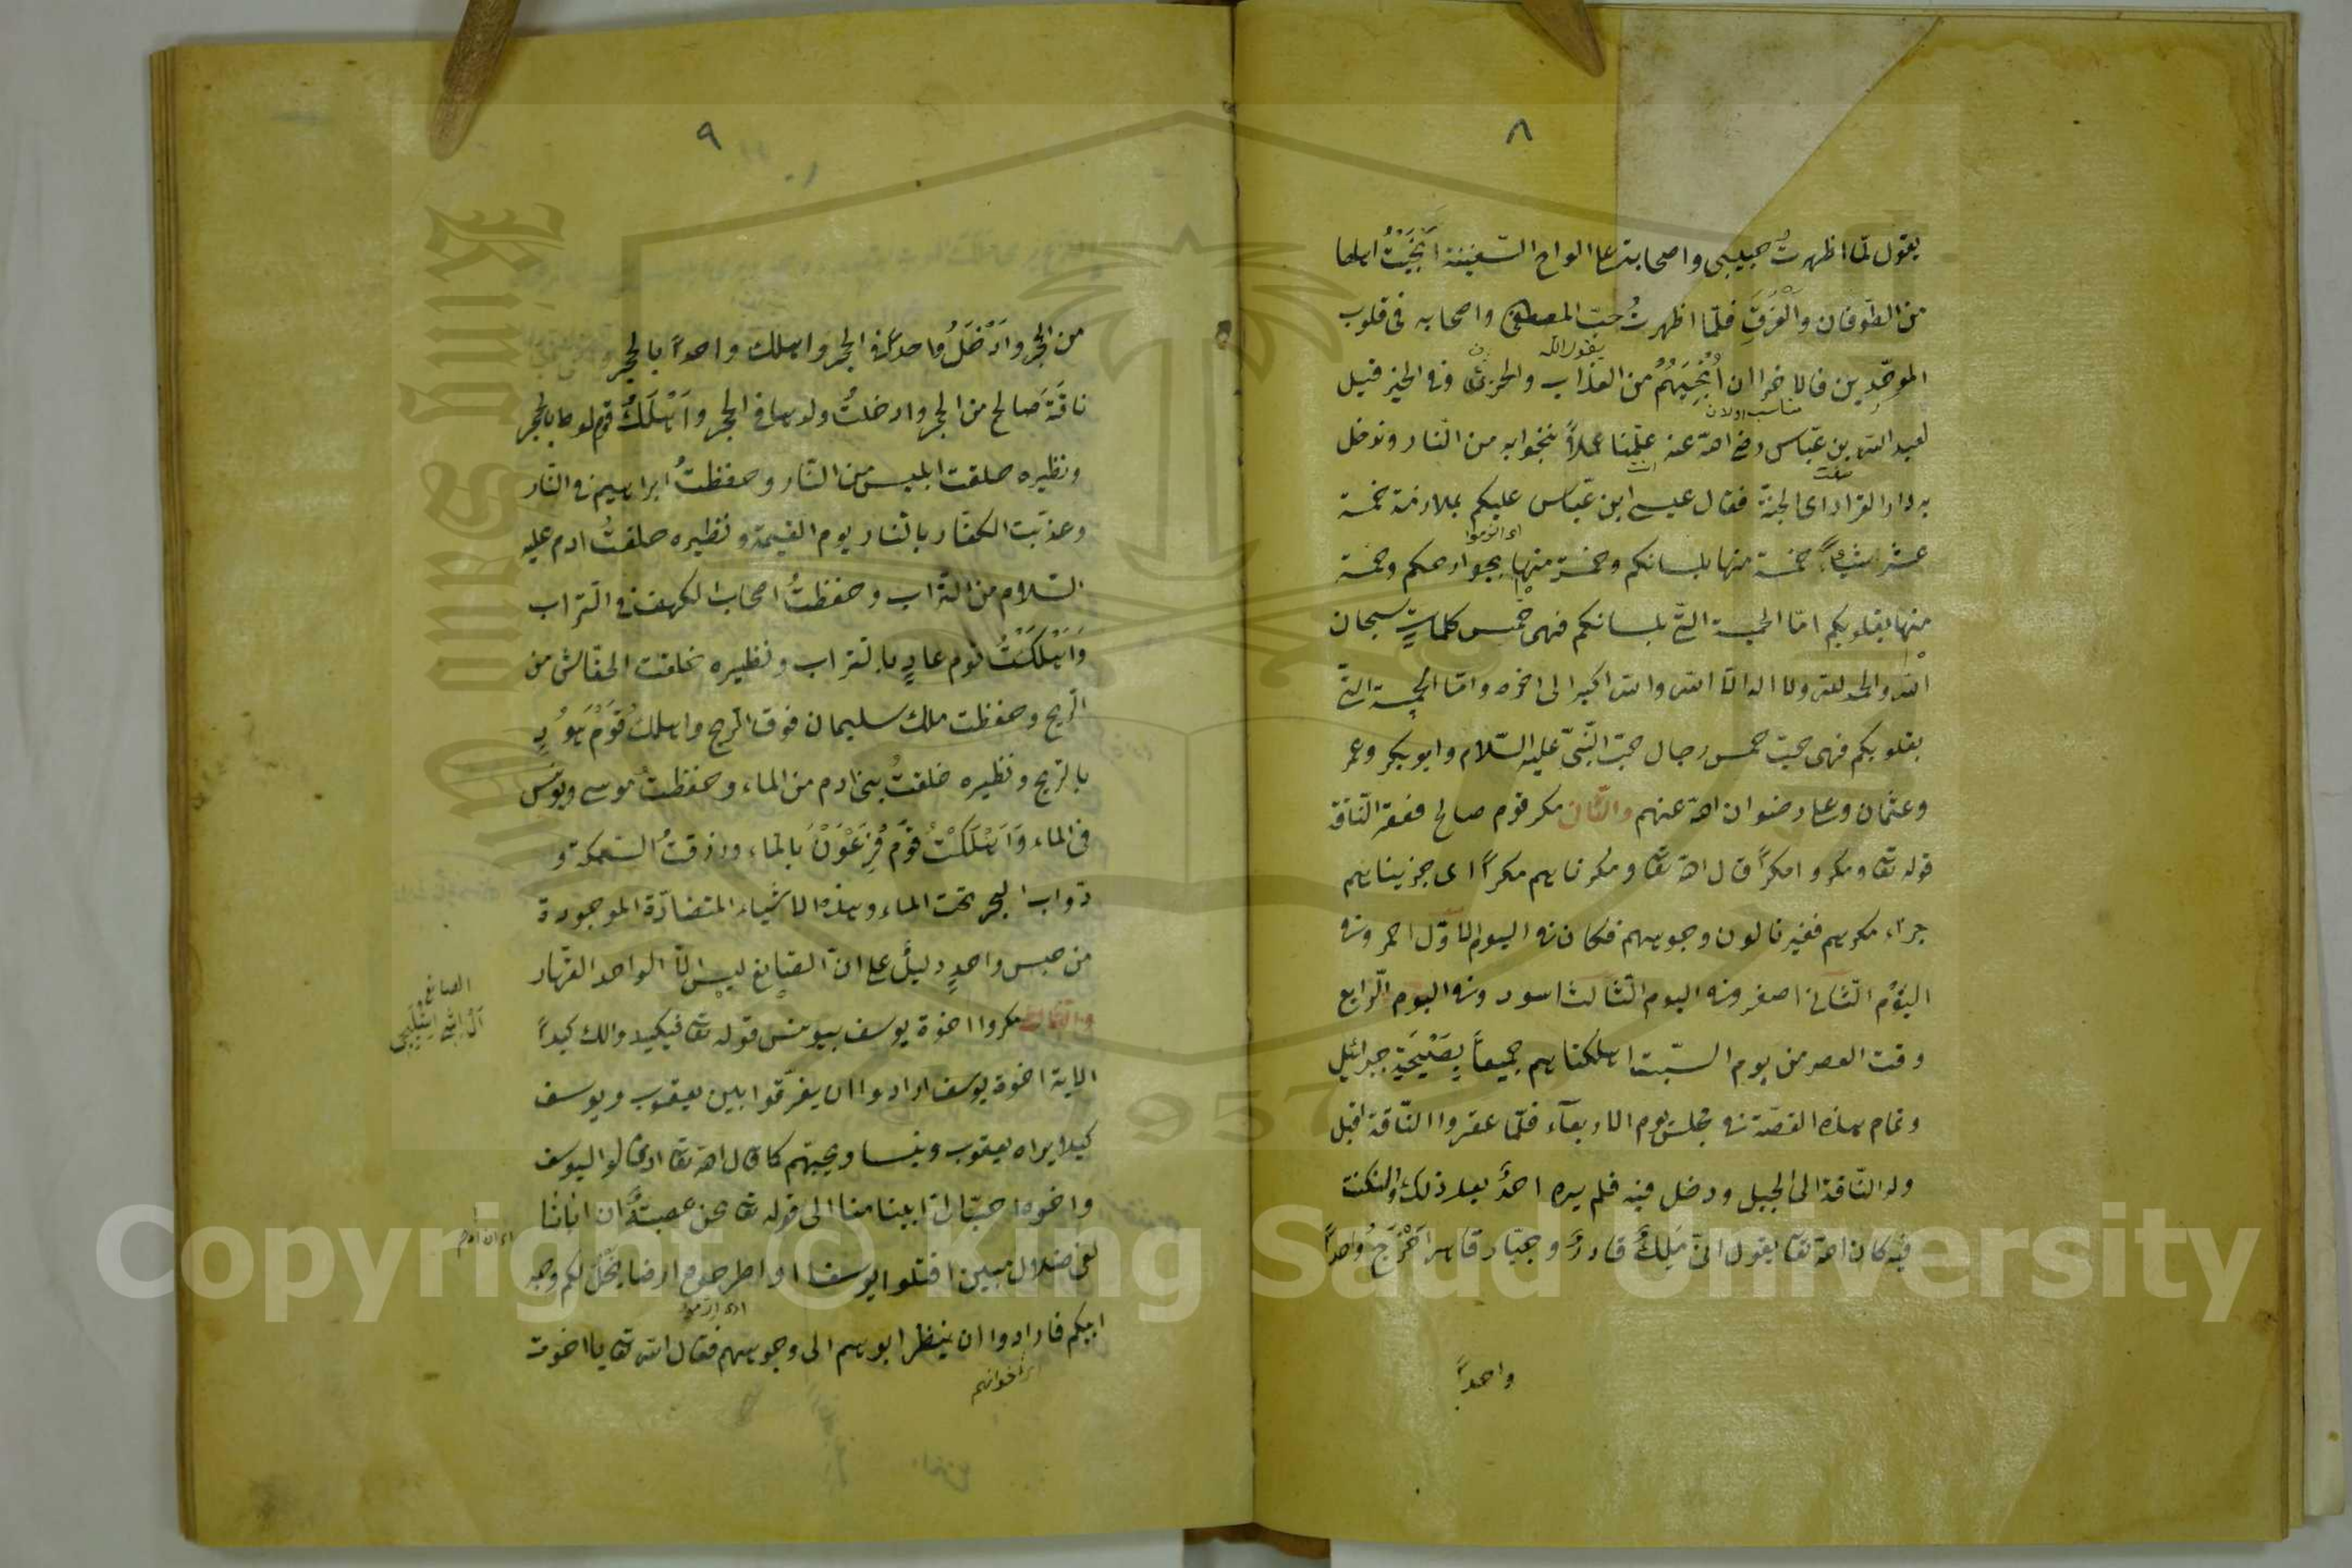 ٨
يقول لما اظهرتُ حبيبى واصحابه على الواح السّفينة اَنْجَيْتُ اهلها
من الطّوفان والْغَرَقِ فلمّا اظهرتُ حبّ المصطفى واصحابه فى قلوب
يقول الله
الموحّدين فالاحرا ان اُنْجِيَهُمْ من العذاب والحزن وفى الخبر قيل
لعبد الله بن عبّاس رضى الله عنه علّمنا عملاً ننجوا به من النّار وندخل
به دار القرار اى الجنّة فقال عيسى ابن عبّاس عليكم بملازمة خمسة
اى الزموا
عشر شيئاً خمسة منها بلسانكم وخمسة منها بجوارحكم وخمسة
منها بقلوبكم امّا الخمسة الّتى بلسانكم فهى خمس كلماتٍ سبحان
الله والحمد لله ولا اله الّا الله والله اكبر الى اخره وامّا الخمسة الّتى
بقلوبكم فهى حبّ خمس رجال حبّ النّبىّ عليه السّلام وابو بكر وعمر
وعثمان وعلى رضوان الله عنهم والثّانى مكر قوم صالح فعقر النّاقة
قوله تعا ومكروا مكراً قال الله تعا ومكرناهم مكراً اى جزيناهم
جزاء مكرهم فغيرنا لون وجوههم فكان فى اليوم الاوّل احمر وفى
اليَوْم الثّانى اصفر وفى اليوم الثّالث اسود وفى اليوم الرّابع
وقت العصر من يوم السّبت اهلكناهم جميعاً بِصَيْحَةِ جبرائيل
وتمام هذه القصّة فى مجلس يوم الاربعاء فلمّا عقروا النّاقة اقبل
ولد النّاقة الى الجبل ودخل فيه فلم يره احدٌ بعد ذلك والنكتة
فيه كان الله تعا يقول انّى مَلِكٌ قادرٌ وجبّار قاهر اَخْرَجْتُ واحداً
واحداً
٩
من الحجر واَدْخَلْتُ واحداً فى الحجر واهلكت واحداً بالحجر
ناقَةَ صَالح من الحجر وادخلتُ ولدها فى الحجر واَهْلَكْتُ قوم لوط بالحجر
ونظيره خلقت ابليس من النّار وحفظتُ ابراهيم فى النّار
وعذّبت الكفّار بالنّار يوم القيمة ونظيره خلقتُ ادم عليه
السّلام من التّراب وحفظتُ اصحاب الكهف فى التّراب
وَاَهْلَكْتُ قوم عادٍ بالتّراب ونظيره خلقت الخفّاش من
الرّيح وحفظت ملك سليمان فوق الرّيح واهلكتُ قَوْمَ هُودٍ
بالرّيح ونظيره خلقتُ بنى ادم من الماء وحفظتُ موسى ويونس
فى الماء وَاَهْلَكْتُ قَوْمَ فِرْعَوْنَ بالماء ورزقتُ السّمكة و
دوّاب البحر تحت الماء وهذه الاشياء المتضادّة الموجودة
من جنس واحدٍ دليلٌ على انّ الصّانع ليس الّا الواحد القهّار
الصانع
والثّالث مكروا اخوة يوسف بيوسف قوله تعا فيكيدوا لك كيداً
الاية اخوة يوسف ارادوا ان يفرّقوا بين يعقوب ويوسف
كيلا يراه يعقوب وينساه ويحبّهم كما قال الله تعا اذ قالوا ليوسف
واخوه احبّ الى ابينا منا الى قوله تعا نحن عصبةٌ ان ابانا
لفى ضلال مبين اقتلوا يوسف او اطرحوه ارضاً يخلُ لكم وجه
ابيكم فارادوا ان ينظر ابوهم الى وجوههم فقال الله تعا يا اخوت